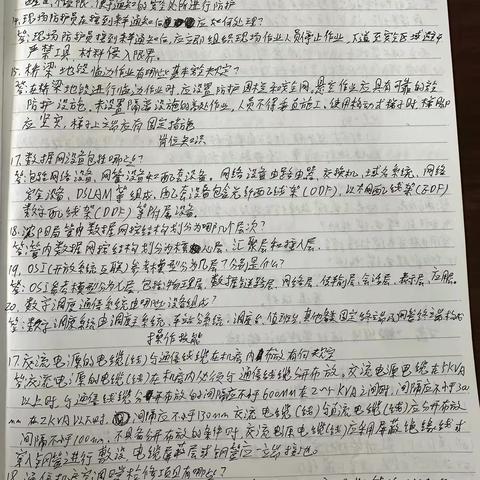 14.现场防护员在接到来车通知后应如何处理?
答:现场防护员接到来车通知后,应立即组织现场作业人员停止作业,下道至安全区域避车
严禁工具、材料侵入限界。
15.桥梁地段临边作业有哪些基本安全规定?
答:在桥梁地段进行临边作业时,应设置防护围栏和安全网,悬空作业应具有可靠的安全
防护设施,未设置隔离设施的高处作业,人员不得垂直施工。使用移动式梯子时,梯脚
应坚实,梯子上端应有固定措施
岗位知识
17.数据网设备包括哪些?
答:包括网络设备、网管设备和配套设备。网络设备由路由器、交换机、域名系统、网络
安全设备、DSLAM等组成,配套设备包含光纤配线架(ODF)、以太网配线架(EDF)
数字配线架(DDF)等附属设备。
18.局管内数据网网络结构划分为哪几个层次?
答:管内数据网网络结构划分为核心层、汇聚层和接入层。
19.OSI(开放系统互联)参考模型分为几层?分别是什么?
答:OSI参考模型分为七层,包括物理层、数据链路层、网络层、传输层、会话层、表示层、应用层。
20.数字调度通信系统由哪些设备组成?
答:数字调度系统由调度主系统、车站分系统、调度台、值班台、其他各类固定终端及网管终端构成
操作技能
17.交流电源的电缆(线)与通信线缆在机房内布放有何规定
答:交流电源的电缆(线)在机房内必须与通信线缆分开布放。交流电源电缆在5KVA
以上时,与通信线缆分开布放的间隔应不小于600mm在2~5KVA之间时,间隔应不小于300
mm在2KVA以下时,间隔应不小于130mm交流电缆(线)与直流电缆(线)应分开布放
间隔不小于100mm,不具备分开布放的条件时,交流电源电缆(线)应采用屏蔽绝缘线或
穿入钢管进行敷设,电缆屏蔽层或钢管应一端接地。